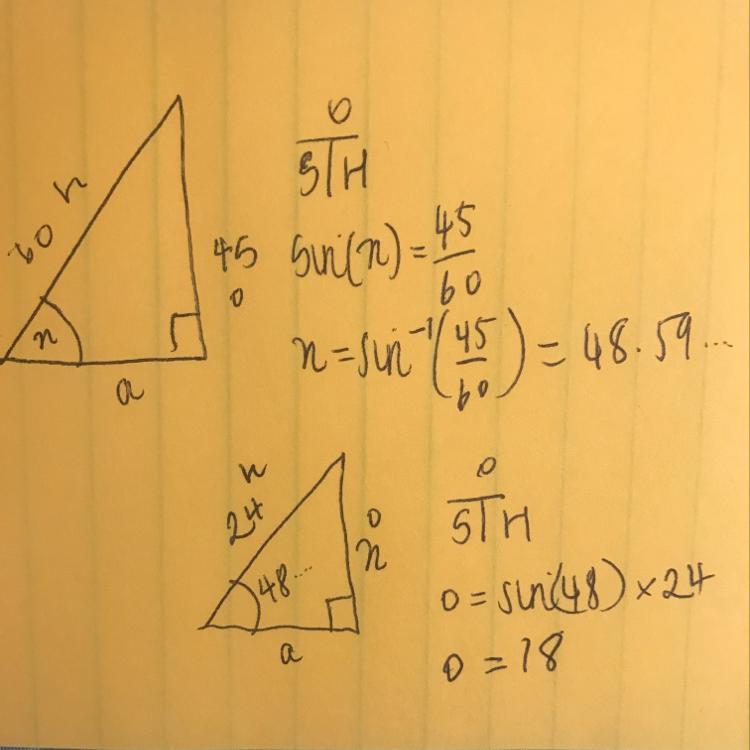 60 h
45
o
x
a
O
S|H
sin(x) = 45/60
x = sin⁻¹(45/60) = 48.59...
h
24
48...
o
x
a
O
S|H
o = sin(48) × 24
o = 18